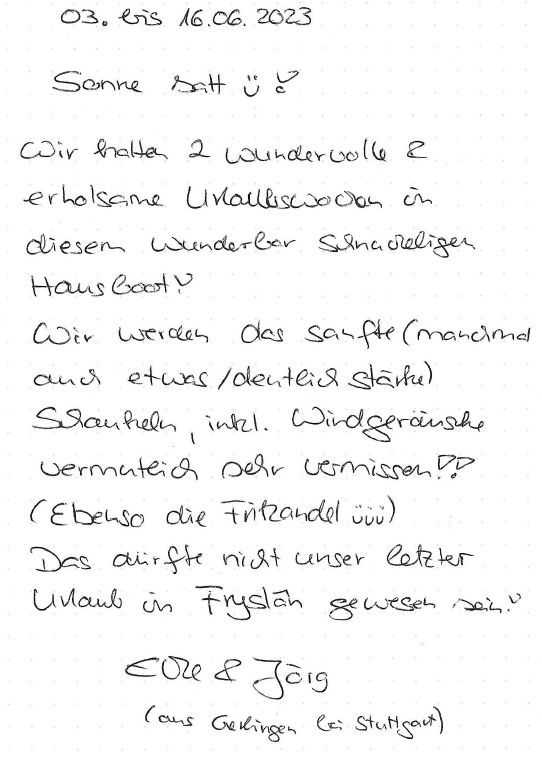 03. bis 16.06.2023
Sonne satt ü!
Wir hatten 2 wundervolle &
erholsame Urlaubswochen in
diesem wunderbar schnuckeligen
Hausboot!
Wir werden das sanfte (manchmal
auch etwas/deutlich stärke)
Schaukeln, inkl. Windgeräusche
vermutlich sehr vermissen!!!
(Ebenso die Frikandel üüü)
Das dürfte nicht unser letzter
Urlaub in Fryslân gewesen sein!
& Jörg
(aus Gerlingen bei Stuttgart)